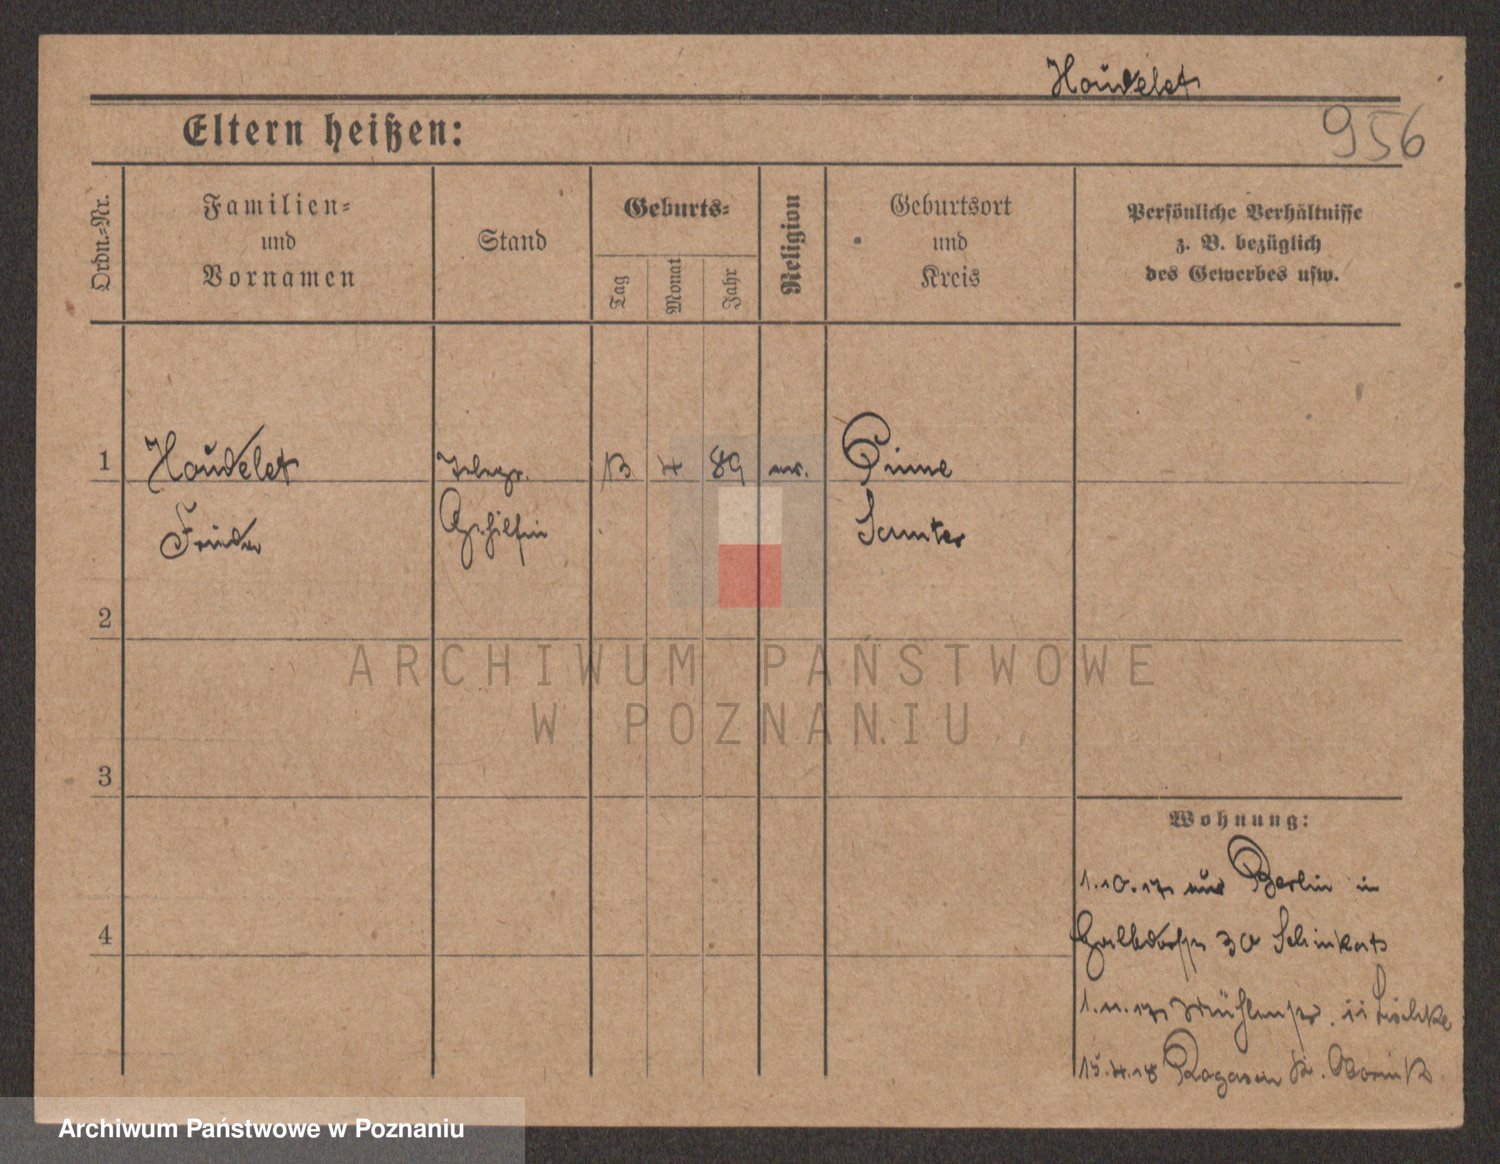 Houdelet
956
Eltern heißen:
Ordn.-Nr.
Familien-
und
Vornamen
Stand
Geburts-
Tag
Monat
Jahr
Religion
Geburtsort
und
Kreis
Persönliche Verhältnisse
z. B. bezüglich
des Gewerbes usw.
1
Houdelet
Telegr.
13
4
89
ev.
Pinne
Frieda
Gehilfin
Samter
2
3
4
Wohnung:
1.10.17 aus Berlin in
30
1.11.17 Mühlenstr. 11
15.4.18 Rogasen K. Obornik
ARCHIWUM PAŃSTWOWE
W POZNANIU
Archiwum Państwowe w Poznaniu